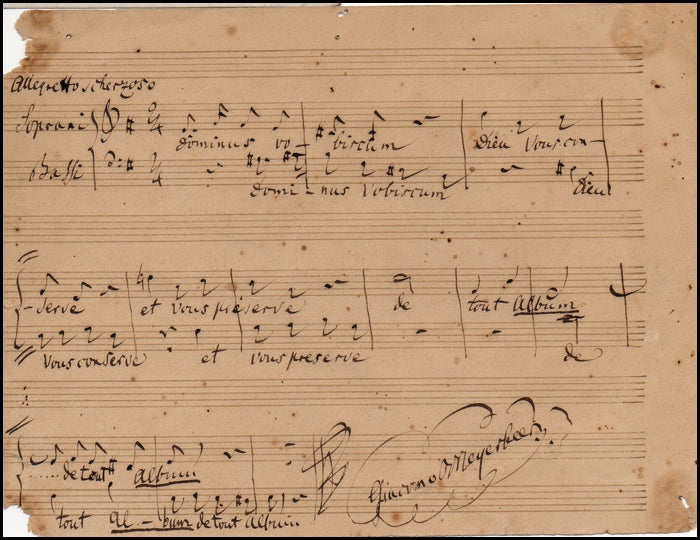 Allegretto scherzoso
Soprani dominus vo - biscum Dieu Vous con -
Bassi Domi - nus Vobiscum Dieu
- serve et vous préserve de tout Album
Vous conserve et vous preserve de
de tout Album
tout Al - bum de tout Album
Giacomo Meyerbeer